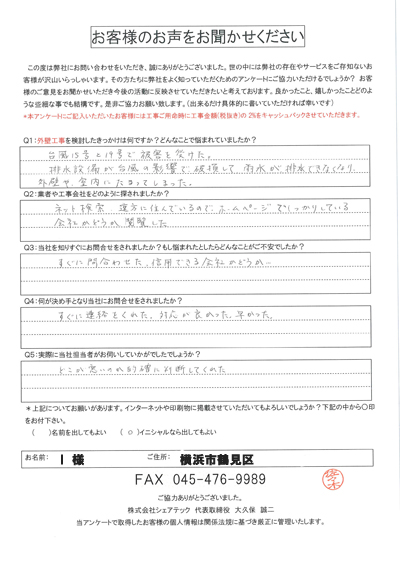 お客様のお声をお聞かせください
この度は弊社にお問い合わせをいただき、誠にありがとうございました。世の中には弊社の存在やサービスをご存知ないお
客様が沢山いらっしゃいます。その方たちに弊社をよく知っていただくためのアンケートにご協力いただけるでしょうか？ お客
様のご意見をお聞かせいただき今後の活動に反映させていただきたいと考えております。良かったこと、嬉しかったことどのよ
うな些細な事でも結構です。是非ご協力お願い致します。（出来るだけ具体的に書いていただければ幸いです）
*本アンケートにご記入いただいたお客様には工事ご用命時に工事金額(税抜き)の2%をキャッシュバックさせていただきます。
Q1:外壁工事を検討したきっかけは何ですか？どんなことで悩まれていましたか？
台風15号と19号で被害を受けた。
排水設備が台風の影響で破損して雨水が排水できなくなり、
外壁や、室内にたまってしまった。
Q2:業者や工事会社をどのように探されましたか？
ネット検索 遠方に住んでいるので、ホームページでしっかりしている
会社かどうか、閲覧した
Q3:当社を知りすぐにお問合せをされましたか？もし悩まれたとしたらどんなことがご不安でしたか？
すぐに問合わせた、信用できる会社かどうか…
Q4:何が決め手となり当社にお問合せをされましたか？
すぐに連絡をくれた。対応が良かった、早かった。
Q5:実際に当社担当者がお伺いしていかがでしたでしょうか？
どこが悪いのか的確に判断してくれた
＊上記についてお願いがあります。インターネットや印刷物に掲載させていただいてもよろしいでしょうか？下記の中から〇印
をお付下さい。
（　）名前を出してもよい　（○）イニシャルなら出してもよい
お名前： I 様 ご住所： 横浜市鶴見区
FAX 045-476-9989
ご協力ありがとうございました。
株式会社シェアテック 代表取締役 大久保 誠二
当アンケートで取得したお客様の個人情報は関係法規に基づき厳正に管理いたします。